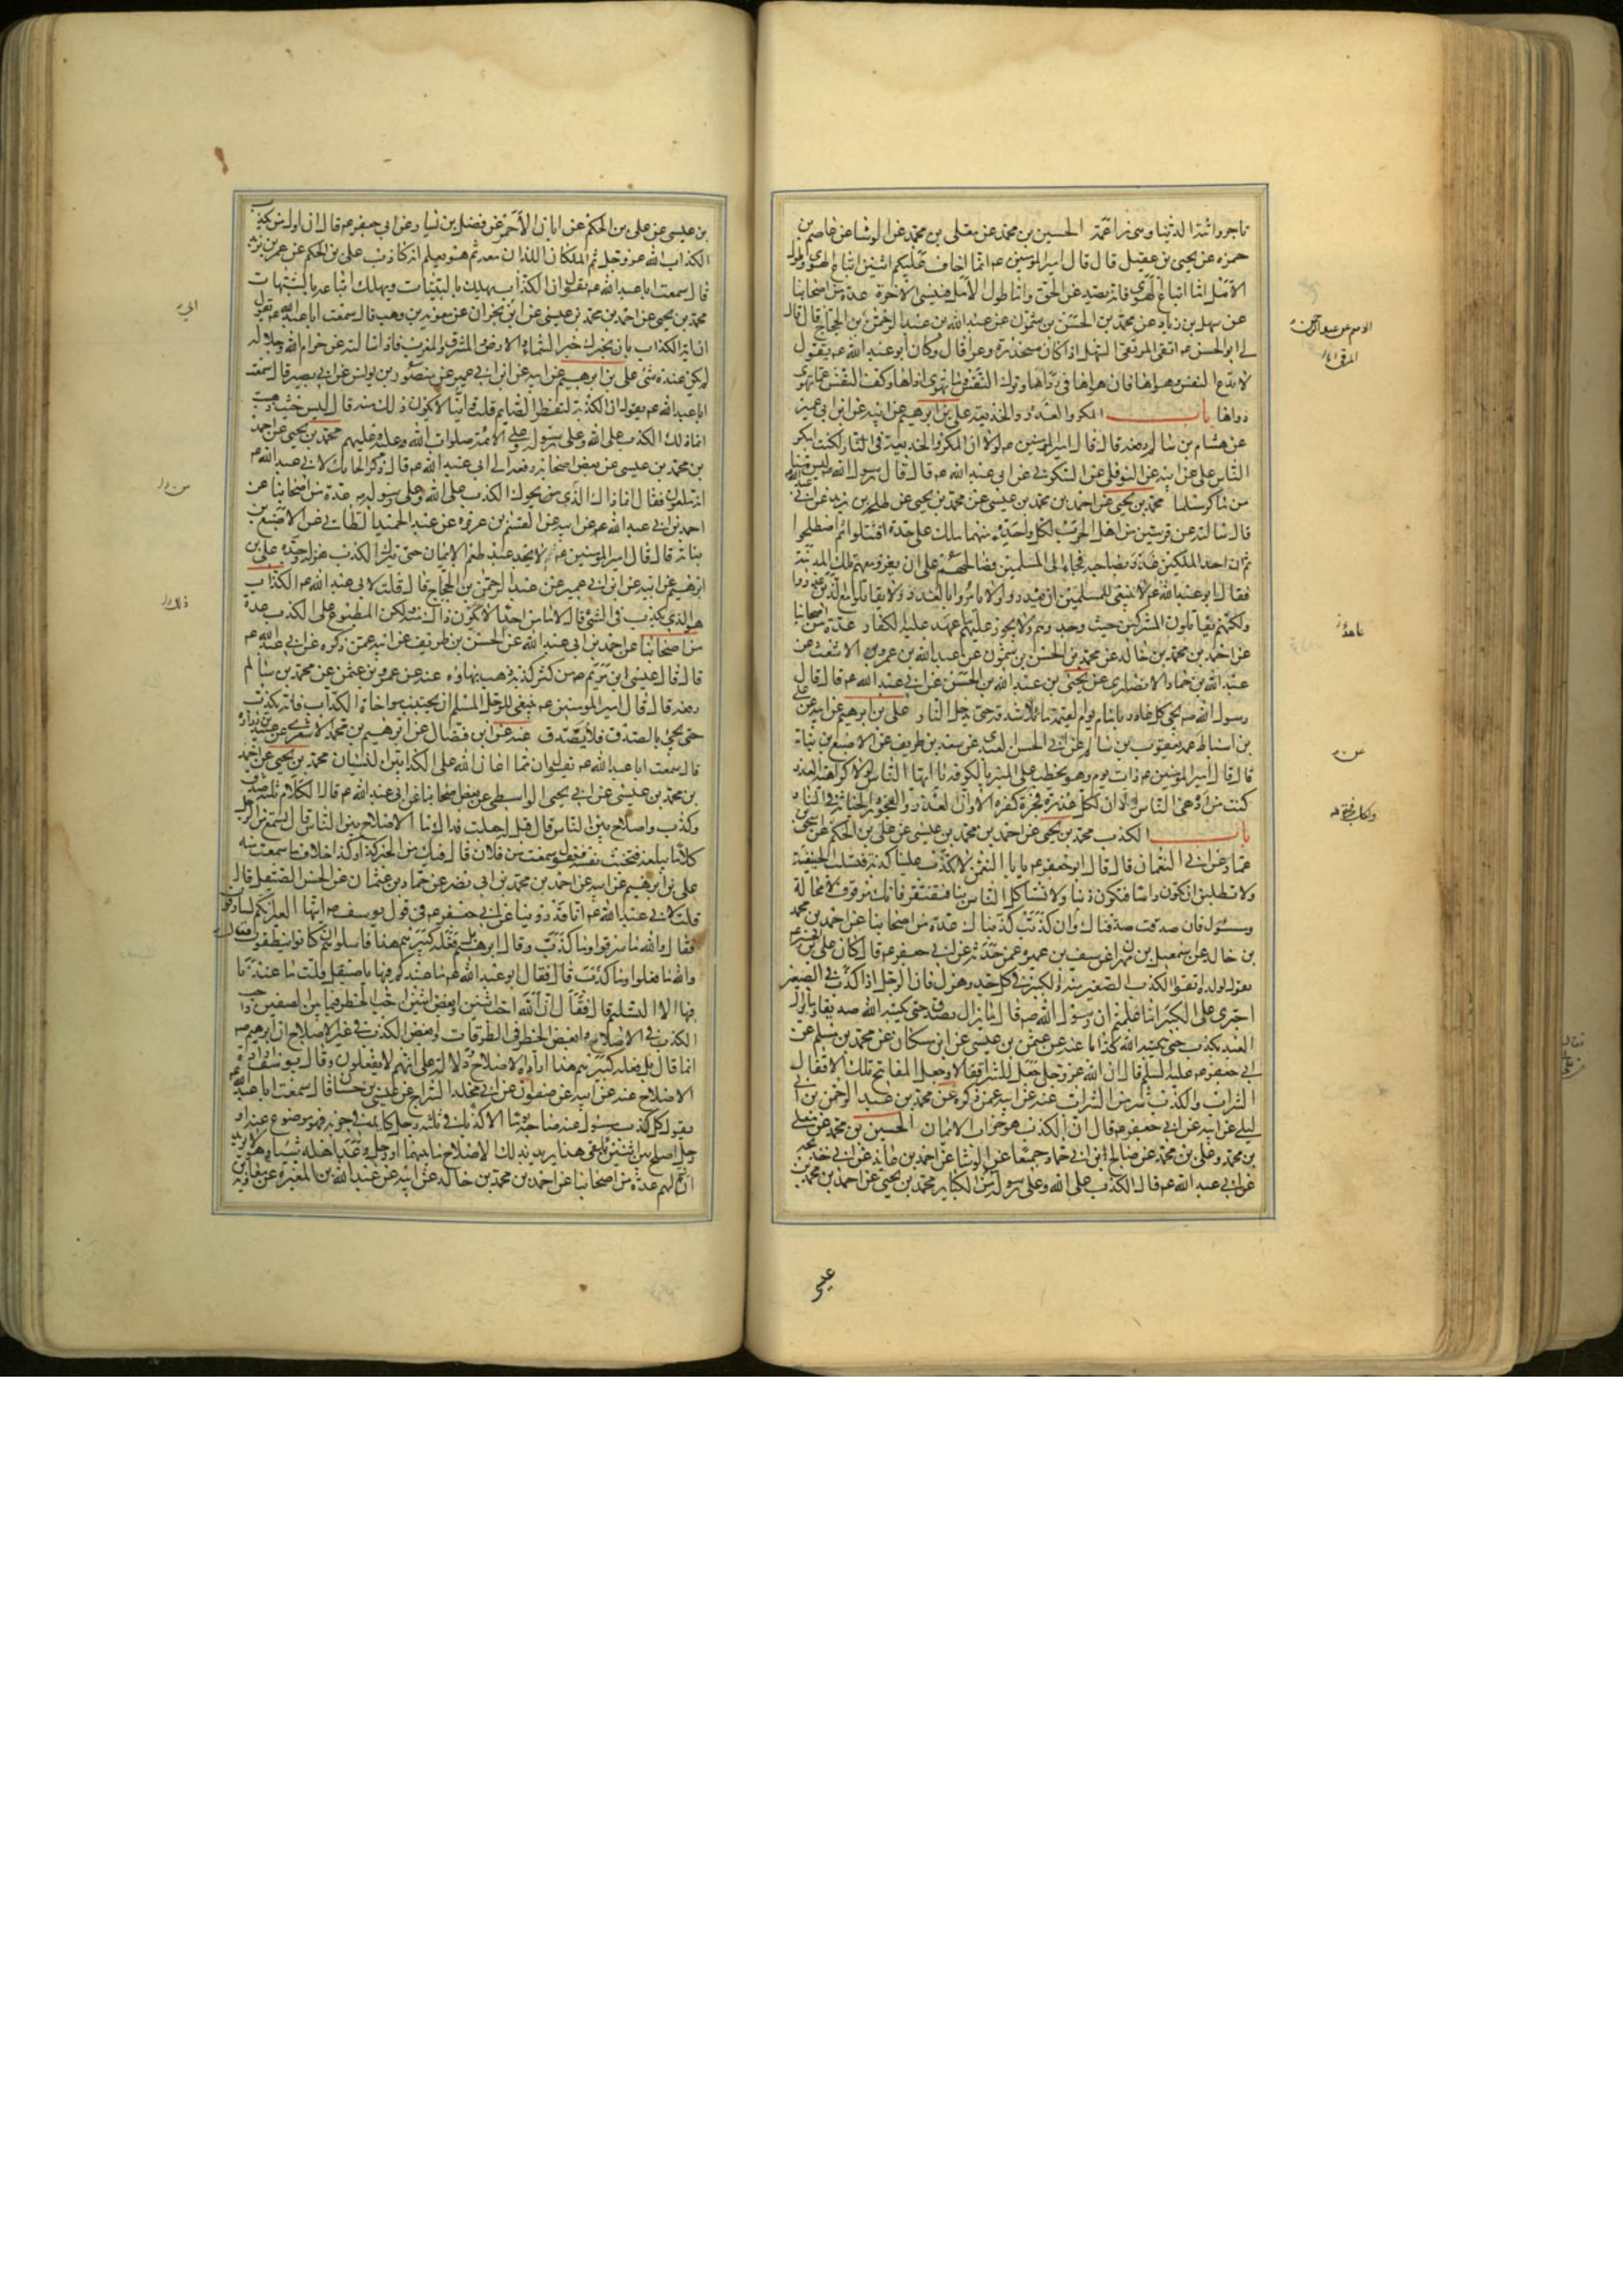 تاجروا لله الدنيا وهي راغمة الحسين بن محمد عن معلى بن محمد عن الوشا عن عاصم بن
حمزه عن يحيى بن عقيل قال قال امير المومنين عم انما اخاف عليكم اثنين اتباع الهوى وطول
الامل اما اتباع الهوى فانه يصد عن الحق واما طول الامل فينسى الاخرة عدة من اصحابنا
عن سهل بن زياد عن محمد بن الحسن بن شمون عن عبد الله بن عبد الرحمن بن الحجاج قال قال
لي ابو الحسن عم اتقى المرتقى السهل اذا كان منحدره وعرا قال وكان ابو عبد الله عم يقول
لا تدع النفس وهواها فان هواها في رداها وترك النفس وما تهوى اذاها وكف النفس عما تهوى
دواها باب المكر والغدر والخديعه على بن ابرهيم عن ابيه عن ابن ابي عمير
عن هشام بن سالم رفعه قال قال امير المومنين عم لولا ان المكر والخديعة في النار لكنت امكر
الناس على عن ابيه عن النوفلي عن السكوني عن ابي عبد الله عم قال قال رسول الله ص ليس منا
من ماكر مسلما محمد بن يحيى عن احمد بن محمد بن عيسى عن محمد بن يحيى عن طلحه بن زيد عن ابي عبد الله
قال سالته عن قريتين من اهل الحرب لكل واحدة منهما ملك على حدة اقتتلوا ثم اصطلحوا
ثم ان احد الملكين غدر بصاحبه فجاء الى المسلمين فصالحهم على ان يغزو معهم تلك المدينة
فقال ابو عبد الله عم لا ينبغي للمسلمين ان يغدروا ولا يامروا بالغدر ولا يقاتلوا مع الذين غدروا
ولكنهم يقاتلون المشركين حيث وجدوهم ولا يجوز عليهم ما عهد عليه الكفار عدة من اصحابنا
عن احمد بن محمد بن خالد عن محمد بن الحسن بن شمون عن عبد الله بن عمرو بن الاشعث عن
عبد الله بن حماد الانصاري عن يحيى بن عبد الله بن الحسن عن ابي عبد الله عم قال قال
رسول الله ص يجيء كل غادر بامام يوم القيمة مائلا شدقه حتى يدخل النار على بن ابرهيم عن ابيه عن على
بن اسباط عن عمه يعقوب بن سالم عن ابي الحسن العبدي عن سعد بن طريف عن الاصبغ بن نباتة
قال قال امير المومنين عم ذات يوم وهو يخطب على المنبر بالكوفه يا ايها الناس لولا كراهية الغدر
كنت من ادهى الناس الا ان لكل غدرة فجرة ولكل فجرة كفرة الا وان الغدر والفجور والخيانة في النار
باب الكذب محمد بن يحيى عن احمد بن محمد بن عيسى عن على بن الحكم عن اسحق بن
عمار عن ابي النعمان قال قال ابو جعفر عم يا با النعمن لا تكذب علينا كذبة فتسلب الحنيفية
ولا تطلبن ان تكون راسا فتكون ذنبا ولا تستاكل الناس بنا فتفتقر فانك موقوف لا محالة
ومسئول فان صدقت صدقناك وان كذبت كذبناك عدة من اصحابنا عن احمد بن محمد
بن خالد عن اسمعيل بن مهران عن سيف بن عميرة عمن حدثه عن ابي جعفر عم قال كان على بن الحسين عم
يقول لولده اتقوا الكذب الصغير منه والكبير في كل جد وهزل فان الرجل اذا كذب في الصغير
اجترى على الكبير اما علمتم ان رسول الله ص قال ما يزال العبد يصدق حتى يكتبه الله صديقا وما يزال
العبد يكذب حتى يكتبه الله كذابا عنه عن عثمن بن عيسى عن ابن مسكان عن محمد بن مسلم عن
ابي جعفر عليه السلم قال ان الله عز وجل جعل للشر اقفالا وجعل المفاتيح تلك الاقفال
الشراب والكذب شر من الشراب عنه عن ابيه عمن ذكره عن محمد بن عبد الرحمن بن ابي
ليلى عن ابيه عن ابي جعفر عم قال ان الكذب هو خراب الايمان الحسين بن محمد عن معلى
بن محمد وعلى بن محمد عن صالح بن ابي حماد جميعا عن الوشا عن احمد بن عايذ عن ابي خديجه
عن ابي عبد الله عم قال الكذب على الله وعلى رسوله من الكباير محمد بن يحيى عن احمد بن محمد بن
عيسى
بن عيسى عن على بن الحكم عن ابان الاحمر عن فضيل بن يسار عن ابي جعفر عم قال ان اول من يكذب
الكذاب الله عز وجل ثم الملكان اللذان معه ثم هو يعلم انه كاذب على بن الحكم عن عمر بن يزيد
قال سمعت ابا عبد الله عم يقول ان الكذاب يهلك بالبينات ويهلك اتباعه بالشبهات
محمد بن يحيى عن احمد بن محمد بن عيسى عن ابن ابي نجران عن معويه بن وهب قال سمعت ابا عبد الله عم يقول
ان اية الكذاب بان يخبرك خبر السماء والارض والمشرق والمغرب فاذا سالته عن حرام الله وحلاله
لم يكن عنده شئ على بن ابرهيم عن ابيه عن ابن ابي عمير عن منصور بن يونس عن ابي بصير قال سمعت
ابا عبد الله عم يقول ان الكذبة لتفطر الصايم قلت واينا لا يكون ذلك منه قال ليس حيث ذهبت
انما ذلك الكذب على الله وعلى رسوله وعلى الائمة صلوات الله وعليه وعليهم محمد بن يحيى عن احمد
بن محمد بن عيسى عن بعض اصحابه رفعه الى ابي عبد الله عم قال ذكر الحايك لابي عبد الله عم
انه ملعون فقال انما ذاك الذي يحوك الكذب على الله وعلى رسوله ص عدة من اصحابنا عن
احمد بن ابي عبد الله عن ابيه عن القسم بن عروة عن عبد الحميد الطائي عن الاصبغ بن
نباته قال قال امير المومنين عم لا يجد عبد طعم الايمان حتى يترك الكذب هزله وجده على بن
ابرهيم عن ابيه عن ابن ابي عمير عن عبد الرحمن بن الحجاج قال قلت لابي عبد الله عم الكذاب
هو الذي يكذب في الشئ قال لا ما من احد الا يكون ذاك منه ولكن المطبوع على الكذب عدة
من اصحابنا عن احمد بن ابي عبد الله عن الحسن بن طريف عن ابيه عمن ذكره عن ابي عبد الله عم
قال قال عيسى ابن مريم عم من كثر كذبه ذهب بهاؤه عنه عن عمرو بن عثمن عن محمد بن سالم
رفعه قال قال امير المومنين عم ينبغي للرجل المسلم ان يجتنب مواخاة الكذاب فانه يكذب
حتى يجئ بالصدق فلا يصدق عنه عن ابن فضال عن ابرهيم بن محمد الاشعري عن عبيد بن زرارة
قال سمعت ابا عبد الله عم يقول ان مما اعان الله على الكذابين النسيان محمد بن يحيى عن احمد
بن محمد بن عيسى عن ابي يحيى الواسطي عن بعض اصحابنا عن ابي عبد الله عم قال الكلام ثلثة صدق
وكذب واصلاح بين الناس قال قيل له جعلت فداك ما الاصلاح بين الناس قال تسمع من الرجل
كلاما يبلغه فتخبث نفسه فتقول سمعت من فلان قال فيك من الخير كذا وكذا خلاف ما سمعت منه
على بن ابرهيم عن ابيه عن احمد بن محمد بن ابي نصر عن حماد بن عثمان عن الحسن الصيقل قال
قلت لابي عبد الله عم انا قد روينا عن ابي جعفر عم في قول يوسف عم ايتها العير انكم لسارقون
فقال والله ما سرقوا وما كذب وقال ابرهيم بل فعله كبيرهم هذا فاسئلوهم ان كانوا ينطقون فقال
والله ما فعلوا وما كذب قال فقال ابو عبد الله عم ما عندكم فيها يا صيقل قلت ما عندنا
فيها الا التسليم قال فقال ان الله احب اثنين وابغض اثنين احب الخطر فيما بين الصفين واحب
الكذب في الاصلاح وابغض الخطر في الطرقات وابغض الكذب في غير الاصلاح ان ابرهيم عم
انما قال بل فعله كبيرهم هذا ارادة الاصلاح ودلالة على انهم لا يفعلون وقال يوسف ارادة
الاصلاح عنه عن ابيه عن صفوان عن ابي مخلد السراج عن عيسى بن حسان قال سمعت ابا عبد الله عم
يقول كل كذب مسئول عنه صاحبه يوما الا كذبا في ثلثة رجل كايد في حربه فهو موضوع عنه او
رجل اصلح بين اثنين يلقى هذا بغير ما يلقى به هذا يريد بذلك الاصلاح ما بينهما او رجل وعد اهله شيئا وهو لا يريد
ان يتم لهم عدة من اصحابنا عن احمد بن محمد بن خالد عن ابيه عن عبد الله بن المغيره عن معاويه